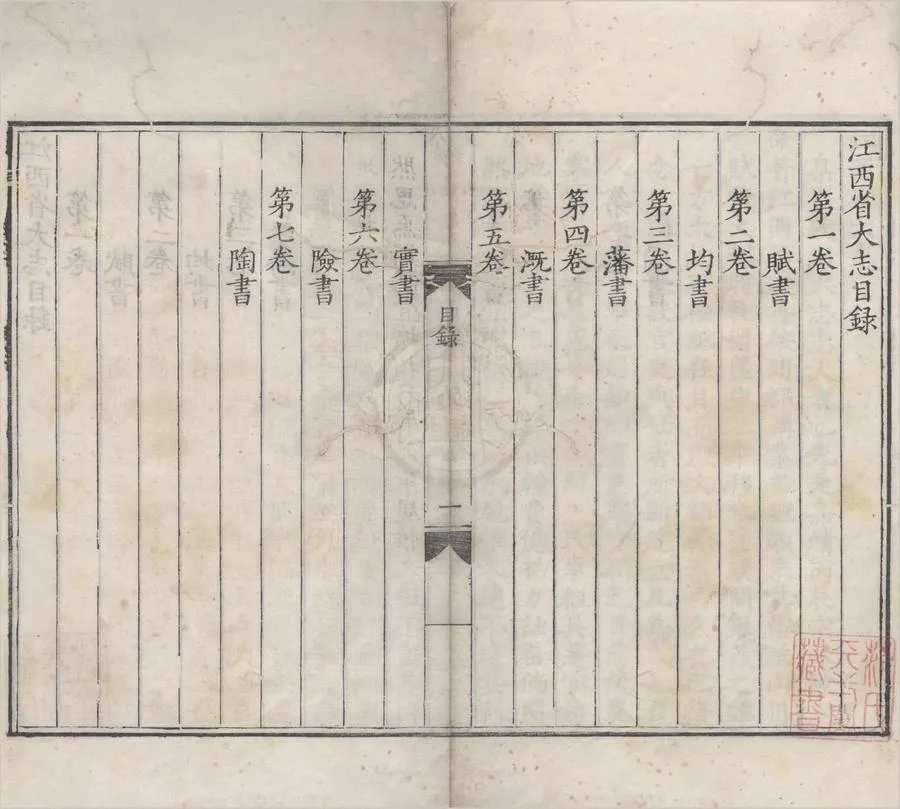 江西省大志目録
第一卷
賦書
第二卷
均書
第三卷
藩書
第四卷
溉書
第五卷
實書
第六卷
險書
第七卷
陶書
目録
一
藏書